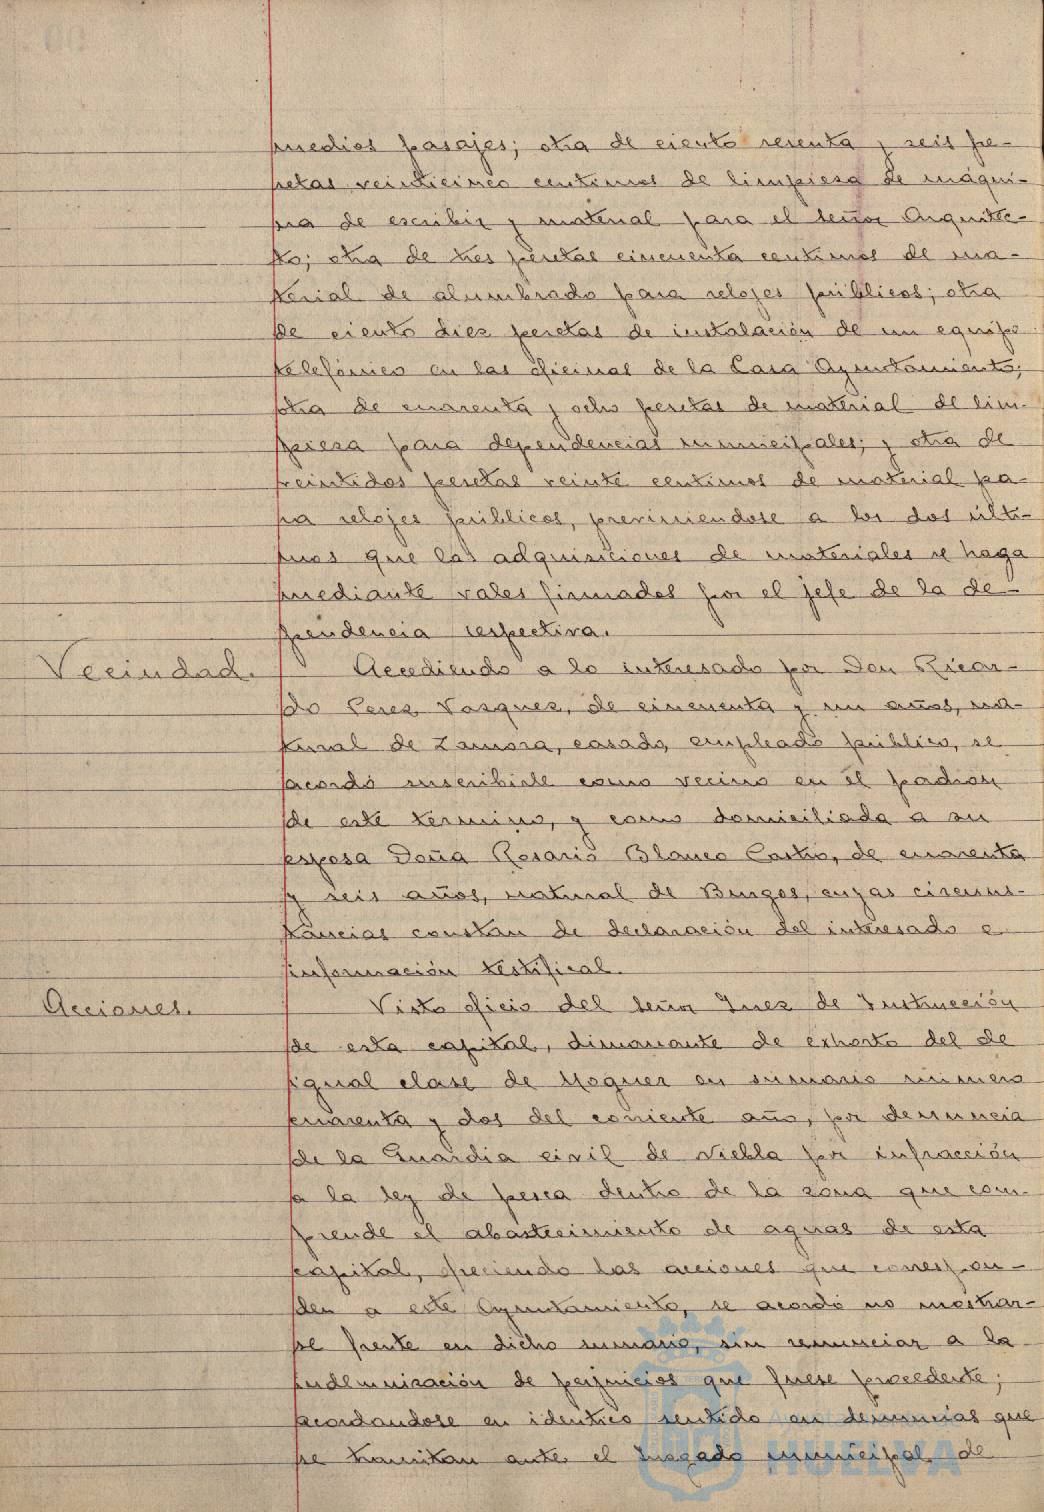 medios pasajes; otra de ciento sesenta y seis pe-
setas veinticinco centimos de limpiesa de máqui-
na de escribir y material para el señor Arquitec-
to; otra de tres pesetas cincuenta centimos de ma-
terial de alumbrado para relojes públicos; otra
de ciento diez pesetas de instalación de un equipo
telefónico en las oficinas de la Casa Ayuntamiento;
otra de cuarenta y ocho pesetas de material de lim-
piesa para dependencias municipales; y otra de
veintidos pesetas veinte centimos de material pa-
ra relojes públicos, previniendose a los dos últi-
mos que las adquisiciones de materiales se haga
mediante vales firmados por el jefe de la de-
pendencia respectiva.
Vecindad.
Accediendo a lo interesado por Don Ricar-
do Perez Vasquez, de cincuenta y un años, na-
tural de Zamora, casado, empleado público, se
acordó suscribirle como vecino en el padrón
de este término, y como domiciliada a su
esposa Doña Rosario Blanco Castro, de cuarenta
y seis años, natural de Burgos, cuyas circuns-
tancias constan de declaración del interesado e
información testifical.
Acciones.
Visto oficio del señor Juez de Instrucción
de esta capital, dimanante de exhorto del de
igual clase de Moguer en sumario número
cuarenta y dos del corriente año, por denuncia
de la Guardia civil de Niebla por infracción
a la ley de pesca dentro de la zona que com-
prende el abastecimiento de aguas de esta
capital, ofreciendo las acciones que correspon-
den a este Ayuntamiento, se acordó no mostrar-
se parte en dicho sumario, sin renunciar a la
indemnización de perjuicios que fuese procedente;
acordandose en identico sentido en denuncias que
se tramitan ante el Juzgado municipal de
HUELVA